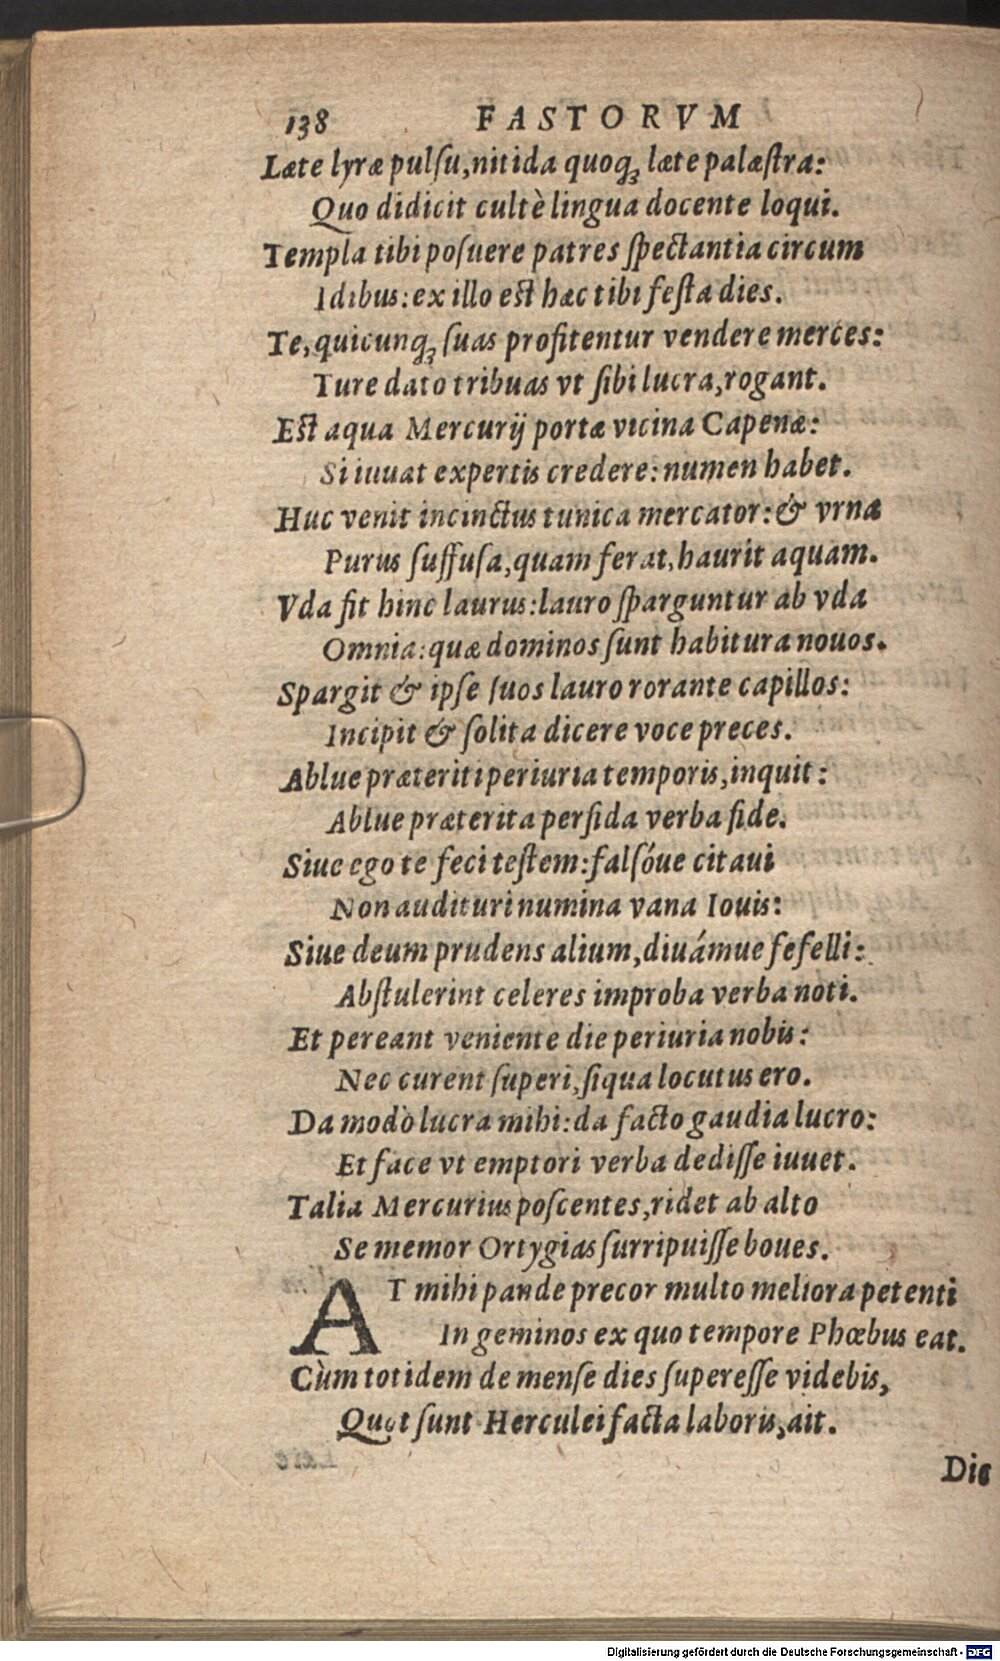 138 FASTORVM
Læte lyræ pulſu, nitida quoqꝫ læte palæſtra:
Quo didicit cultè lingua docente loqui.
Templa tibi poſuere patres ſpectantia circum
Idibus: ex illo eſt hæc tibi feſta dies.
Te, quicunqꝫ ſuas profitentur vendere merces:
Ture dato tribuas vt ſibi lucra, rogant.
Eſt aqua Mercurij portæ vicina Capenæ:
Si iuuat expertis credere: numen habet.
Huc venit incinctus tunica mercator: & vrna
Purus ſuffuſa, quam ferat, haurit aquam.
Vda fit hinc laurus: lauro ſparguntur ab vda
Omnia: quæ dominos ſunt habitura nouos.
Spargit & ipſe ſuos lauro rorante capillos:
Incipit & ſolita dicere voce preces.
Ablue præteriti periuria temporis, inquit:
Ablue præterita perfida verba fide.
Siue ego te feci teſtem: falſóue citaui
Non audituri numina vana Iouis:
Siue deum prudens alium, diuámue fefelli:
Abſtulerint celeres improba verba noti.
Et pereant veniente die periuria nobis:
Nec curent ſuperi, ſiqua locutus ero.
Da modò lucra mihi: da facto gaudia lucro:
Et face vt emptori verba dediſſe iuuet.
Talia Mercurius poſcentes, ridet ab alto
Se memor Ortygias ſurripuiſſe boues.
AT mihi pande precor multo meliora petenti
In geminos ex quo tempore Phœbus eat.
Cùm totidem de menſe dies ſupereſſe videbis,
Quot ſunt Herculei facta laboris, ait.
Dic
Digitalisierung gefördert durch die Deutsche Forschungsgemeinschaft - DFG